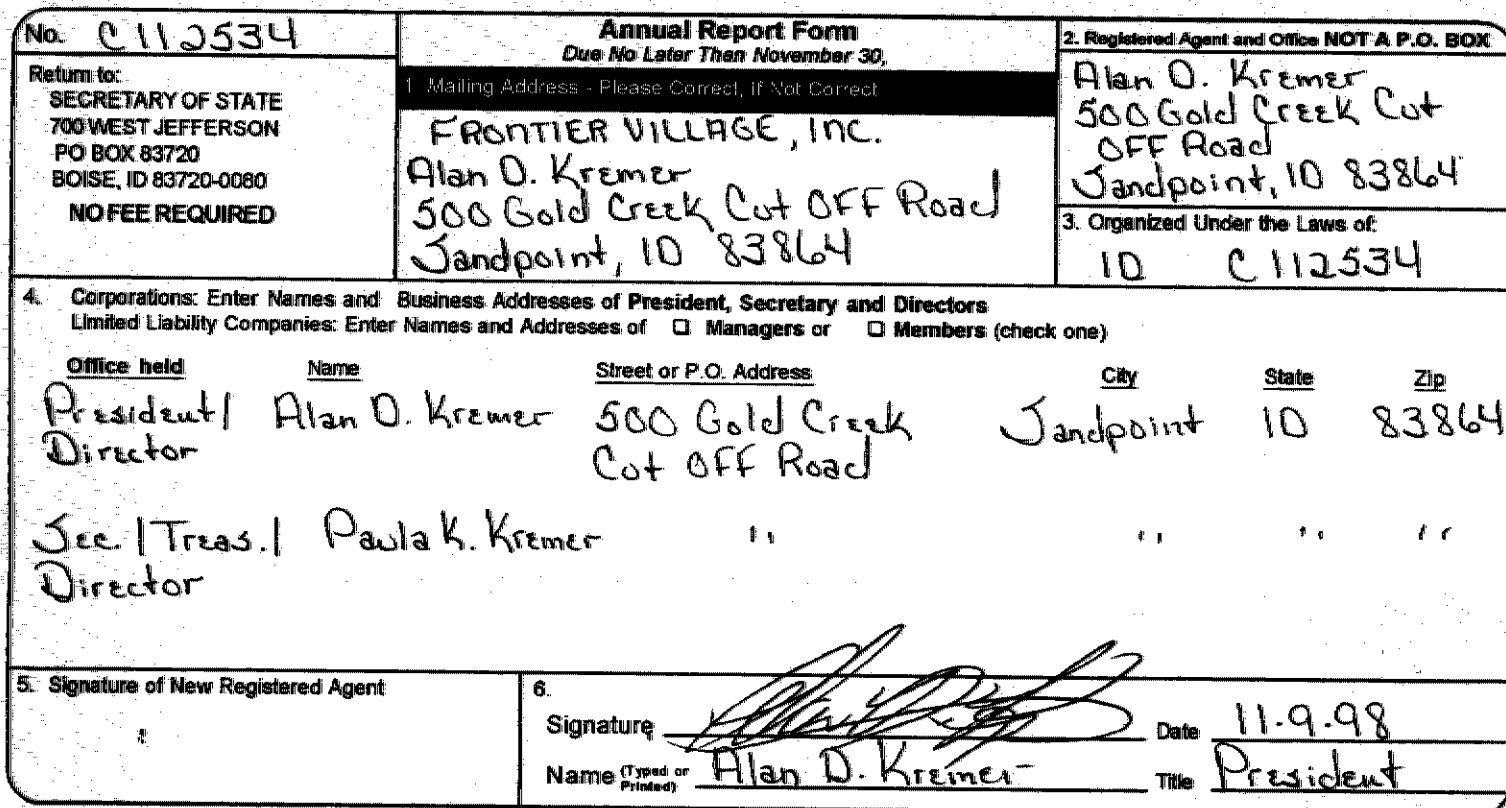 No. C112534
Return to:
SECRETARY OF STATE
700 WEST JEFFERSON
PO BOX 83720
BOISE, ID 83720-0080
NO FEE REQUIRED
Annual Report Form
Due No Later Than November 30,
1 Mailing Address - Please Correct, If Not Correct
FRONTIER VILLAGE, INC.
Alan D. Kremer
500 Gold Creek Cut OFF Road
Sandpoint, ID 83864
2. Registered Agent and Office NOT A P.O. BOX
Alan D. Kremer
500 Gold Creek Cut
OFF Road
Sandpoint, ID 83864
3. Organized Under the Laws of:
ID C112534
4. Corporations: Enter Names and Business Addresses of President, Secretary and Directors
Limited Liability Companies: Enter Names and Addresses of □ Managers or □ Members (check one)
Office held Name Street or P.O. Address City State Zip
President/ Alan D. Kremer 500 Gold Creek Sandpoint ID 83864
Director Cut OFF Road
Sec. / Treas. / Paula K. Kremer " " " "
Director
5. Signature of New Registered Agent
6.
Signature Date 11-9-98
Name (Typed or Printed) Alan D. Kremer Title President